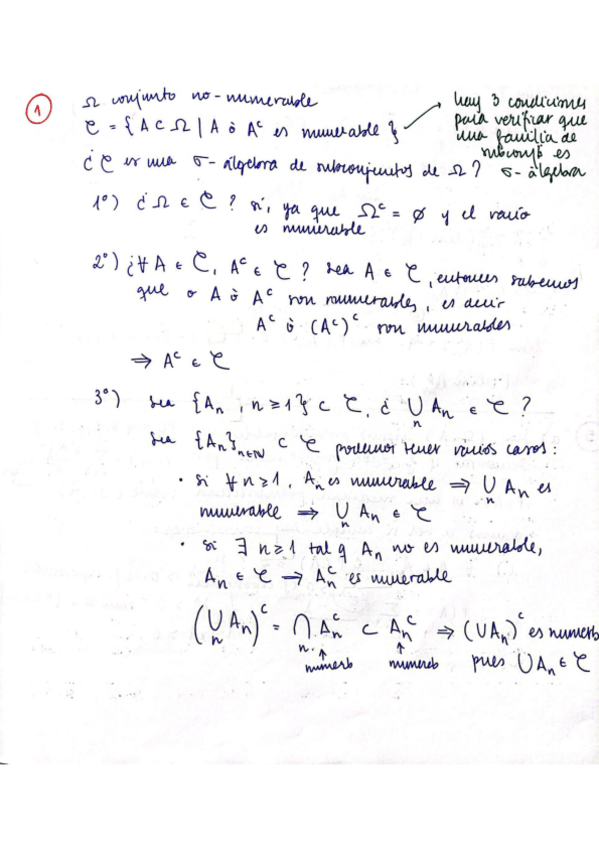 1
Ω conjunto no-numerable
𝒞 = { A ⊂ Ω | A ò Aᶜ es numerable }
→ hay 3 condiciones
para verificar que
una familia de
subconj es
σ-álgebra
¿𝒞 es una σ-álgebra de subconjuntos de Ω?
1º) ¿Ω ∈ 𝒞? sí, ya que Ωᶜ = ∅ y el vacío
es numerable
2º) ¿∀ A ∈ 𝒞, Aᶜ ∈ 𝒞? sea A ∈ 𝒞, entonces sabemos
que o A ò Aᶜ son numerables, es decir
Aᶜ ò (Aᶜ)ᶜ son numerables
⇒ Aᶜ ∈ 𝒞
3º) sea {An, n ≥ 1} ⊂ 𝒞, ¿ ⋃n An ∈ 𝒞?
sea {An}n∈ℕ ⊂ 𝒞 podemos tener varios casos:
· si ∀ n ≥ 1, An es numerable ⇒ ⋃n An es
numerable ⇒ ⋃n An ∈ 𝒞
· si ∃ n ≥ 1 tal q An no es numerable,
An ∈ 𝒞 → Anᶜ es numerable
(⋃n An)ᶜ = ⋂n Anᶜ ⊂ Anᶜ ⇒ (∪An)ᶜ es numerb
↑ numerb ↑ numereb pues ∪An ∈ 𝒞